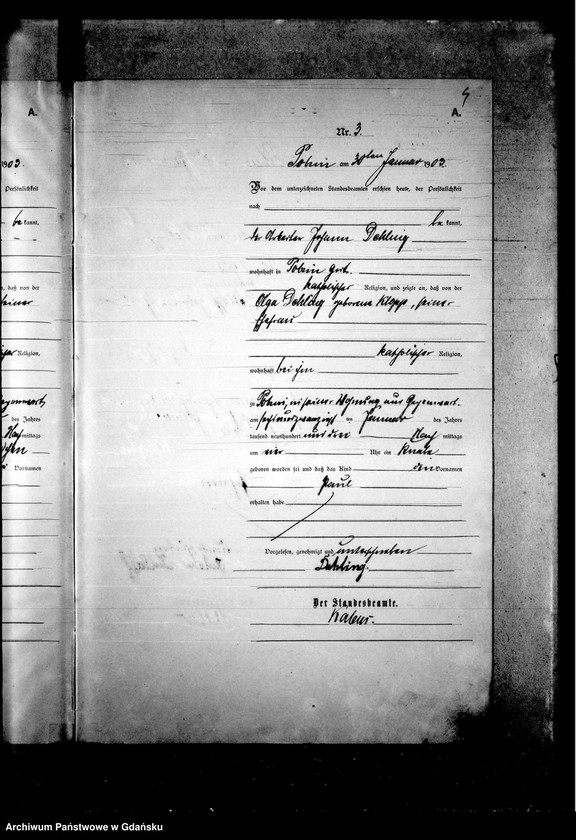 A.
1903.
Persönlichkeit
be kannt,
n, daß von der
seiner
Religion,
des Jahres
Nach mittags
Vornamen
4
A.
Nr. 3.
am 30ten Januar 1903.
Vor dem unterzeichneten Standesbeamten erschien heute, der Persönlichkeit
nach
be kannt,
der Arbeiter Johann Dehling
wohnhaft in
katholischer Religion, und zeigte an, daß von der
Olga Dehling geborene Klepps, seiner
Ehefrau
katholischer Religion,
wohnhaft bei ihm
zu in seiner Wohnung
am sechsundzwanzigsten Januar des Jahres
tausend neunhundert und drei Nach mittags
um vier Uhr ein Knabe
geboren worden sei und daß das Kind den Vornamen
Paul
erhalten habe
Vorgelesen, genehmigt und unterschrieben
Dehling.
Der Standesbeamte.
Archiwum Państwowe w Gdańsku